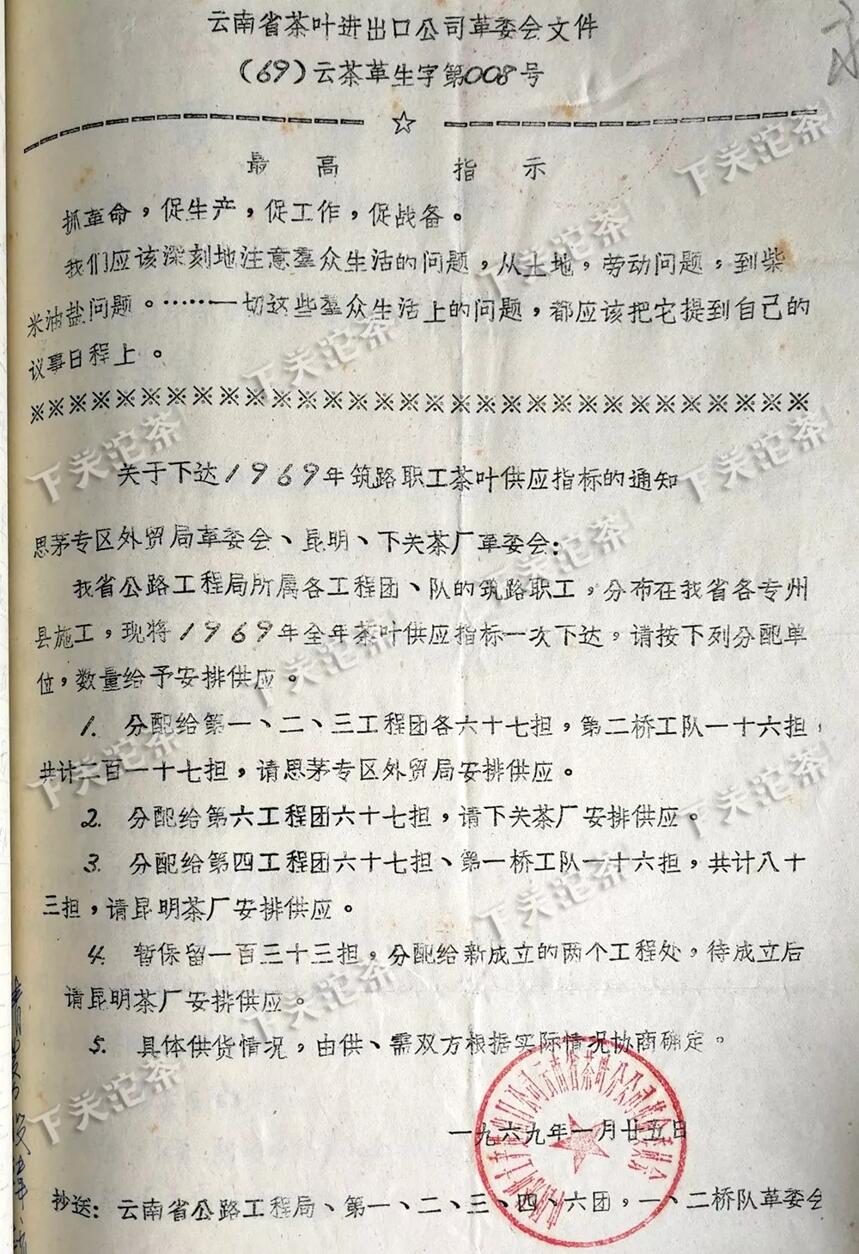 云南省茶叶进出口公司革委会文件
(69)云茶革生字第008号
☆
最高指示
抓革命，促生产，促工作，促战备。
我们应该深刻地注意羣众生活的问题，从土地，劳动问题，到柴
米油盐问题。……一切这些羣众生活上的问题，都应该把它提到自己的
议事日程上。
※※※※※※※※※※※※※※※※※※※※※※※※※※※※※※※
关于下达1969年筑路职工茶叶供应指标的通知
思茅专区外贸局革委会、昆明、下关茶厂革委会：
我省公路工程局所属各工程团、队的筑路职工，分布在我省各专州
县施工，现将1969年全年茶叶供应指标一次下达，请按下列分配单
位，数量给予安排供应。
1. 分配给第一、二、三工程团各六十七担，第二桥工队一十六担，
共计二百一十七担，请思茅专区外贸局安排供应。
2. 分配给第六工程团六十七担，请下关茶厂安排供应。
3. 分配给第四工程团六十七担、第一桥工队一十六担，共计八十
三担，请昆明茶厂安排供应。
4. 暂保留一百三十三担，分配给新成立的两个工程处，待成立后
请昆明茶厂安排供应。
5. 具体供货情况，由供、需双方根据实际情况协商确定。
一九六九年一月廿五日
抄送：云南省公路工程局、第一、二、三、四、六团，一、二桥队革委会
下关沱茶